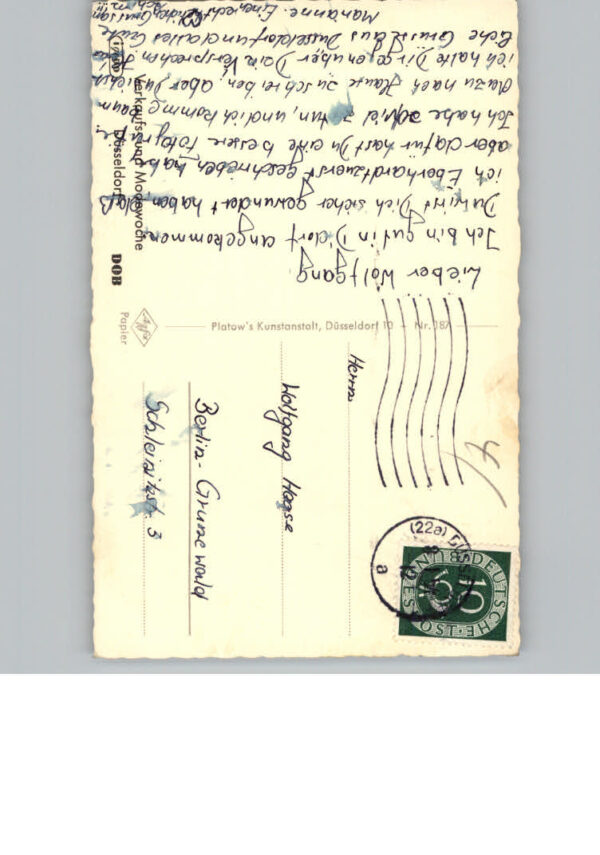 Lieber Wolfgang,
Ich bin gut in D'dorf angekommen
Du wirst Dich sicher gewundert haben, daß
ich Eberhardt zuerst geschrieben habe
aber dafür hast Du eine bessere
Ich habe soviel z. tun, und ich komme kaum
dazu nach Hause zu schreiben, aber Du siehst
ich halte Dir gegenüber Dein Versprechen.
liche Grüsse aus Düsseldorf und alles Gute
Marianne. Einen recht Gruss an
Verkaufs- und Modewoche
Düsseldorf
DOB
Agfa
Papier
Platow's Kunstanstalt, Düsseldorf 10 - Nr. 187
Herrn
Wolfgang Haase
Berlin-Grunewald
Schleinitzstr. 3
(22a)
a
DEUTSCHE BUNDESPOST
10